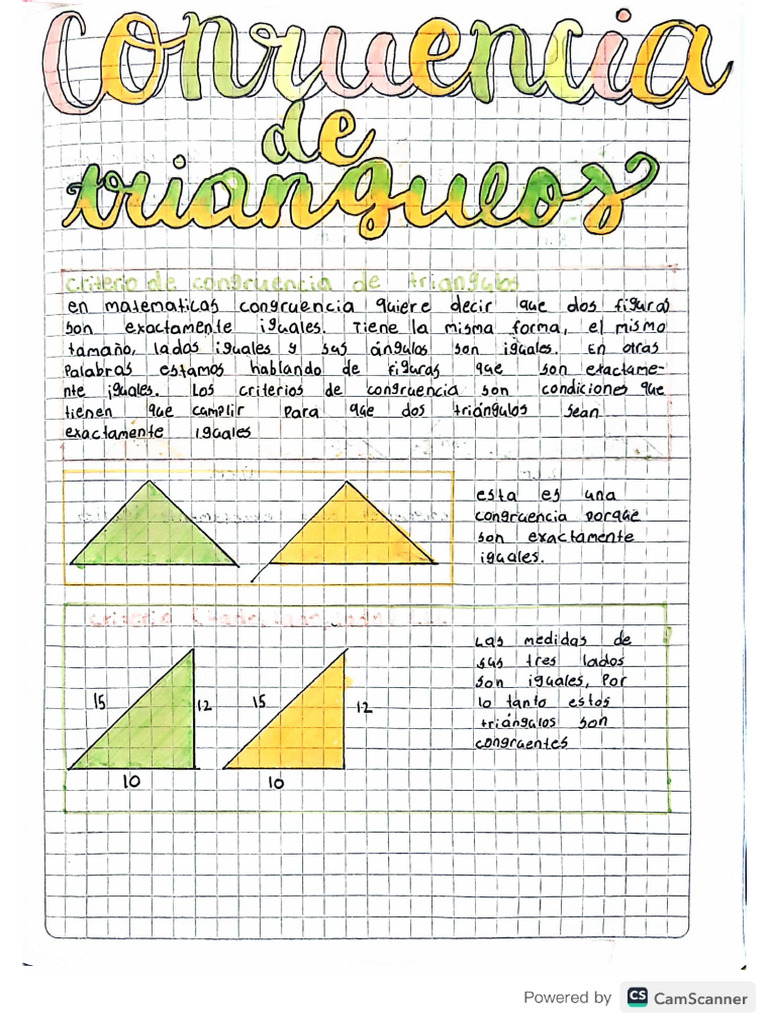 Conruencia
de
triangulos
criterio de congruencia de triangulos
en matematicas congruencia quiere decir que dos figuras
son exactamente iguales. Tiene la misma forma, el mismo
tamaño, lados iguales y sus ángulos son iguales. En otras
Palabras estamos hablando de figuras que son exactame-
nte iguales. Los criterios de congruencia son condiciones que
tienen que cumplir para que dos triángulos sean
exactamente iguales
esta es una
congruencia porque
son exactamente
iguales.
criterio
Las medidas de
sus tres lados
son iguales, Por
lo tanto estos
triángulos son
congruentes
15 12 15 12
10 10
Powered by CS CamScanner